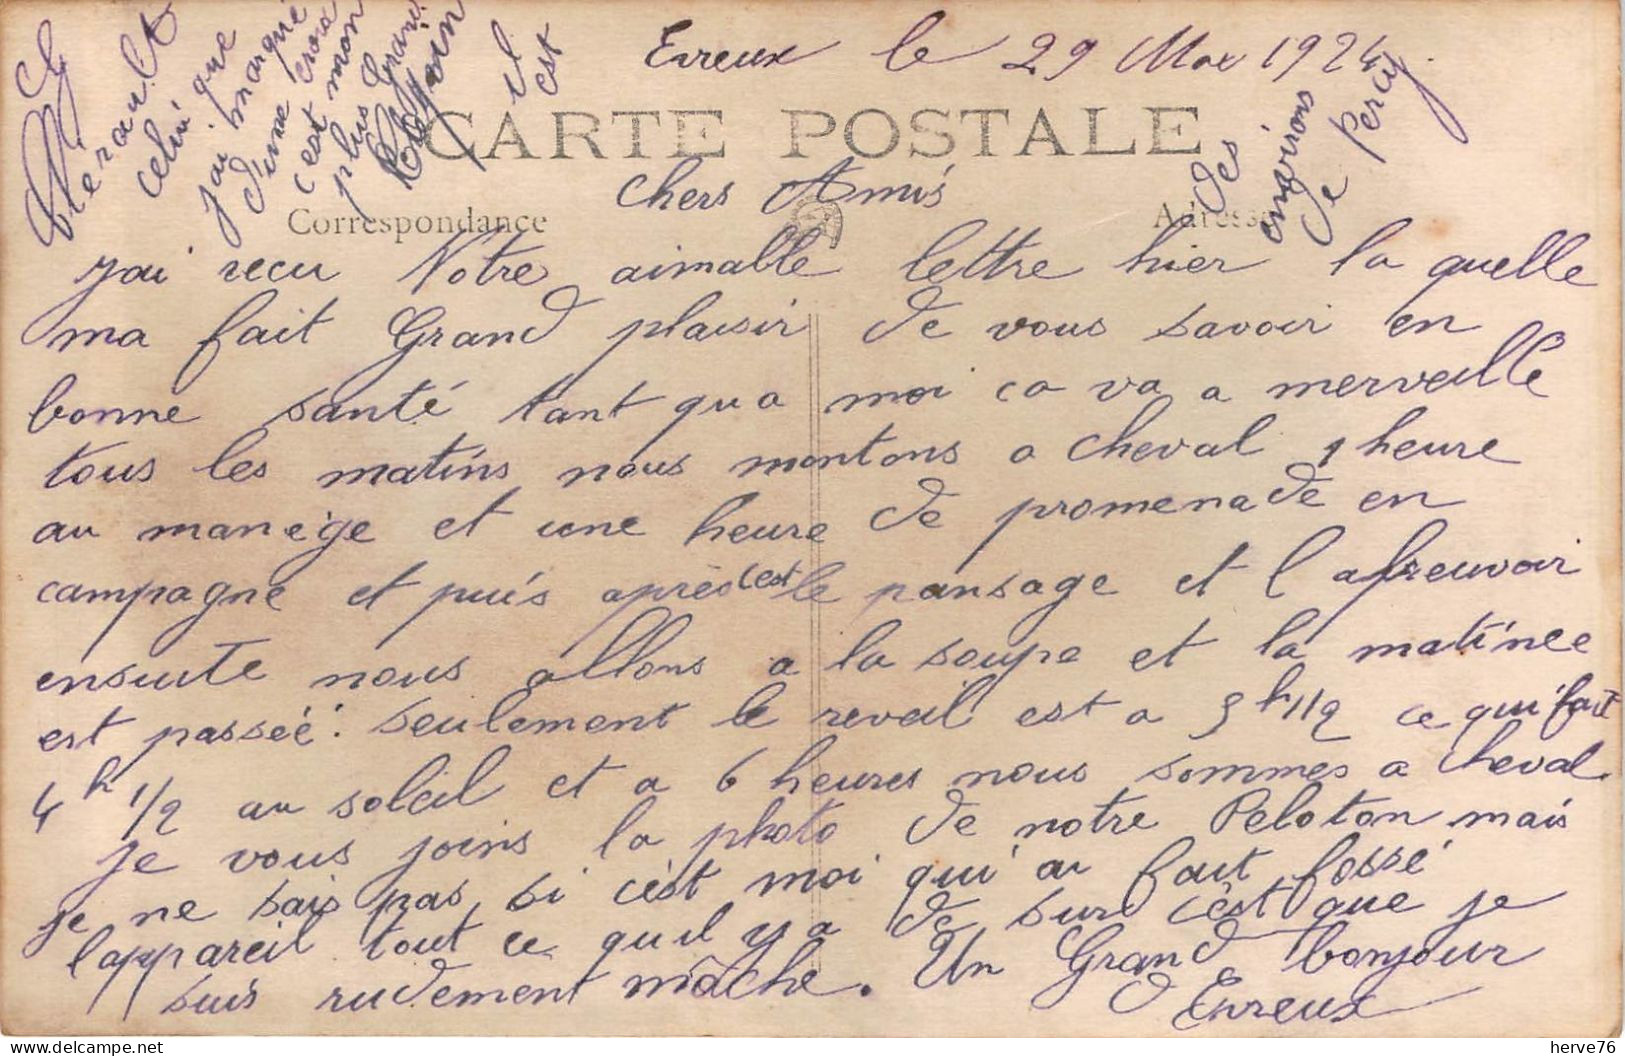 Evreux le 29 Mai 1924.
CARTE POSTALE
Correspondance
Adresse
Chers Amis
j'ai recu Votre aimable lettre hier la quelle
ma fait Grand plaisir de vous savoir en
bonne santé tant qu a moi ca va a merveille
tous les matins nous montons a cheval 1 heure
au manège et une heure de promenade en
campagne et puis après c'est le pansage et l abreuvoir
ensuite nous allons a la soupe et la matinee
est passéé. seulement le reveil est a 5h 1/2 ce qui fait
4h 1/2 au soleil et a 6 heures nous sommes a cheval.
je vous joins la photo de notre Peloton mais
je ne sais pas si c'est moi qui ai fait fossé
l'appareil tout ce qu il y a de sur c'est que je
suis rudement môche. Un Grand bonjour
d Evreux
G Hérault
celui que
j'ai marqué
d'une croix
c'est mon
plus Grand
Copain
il
est
des
environs
de Percy
herve76